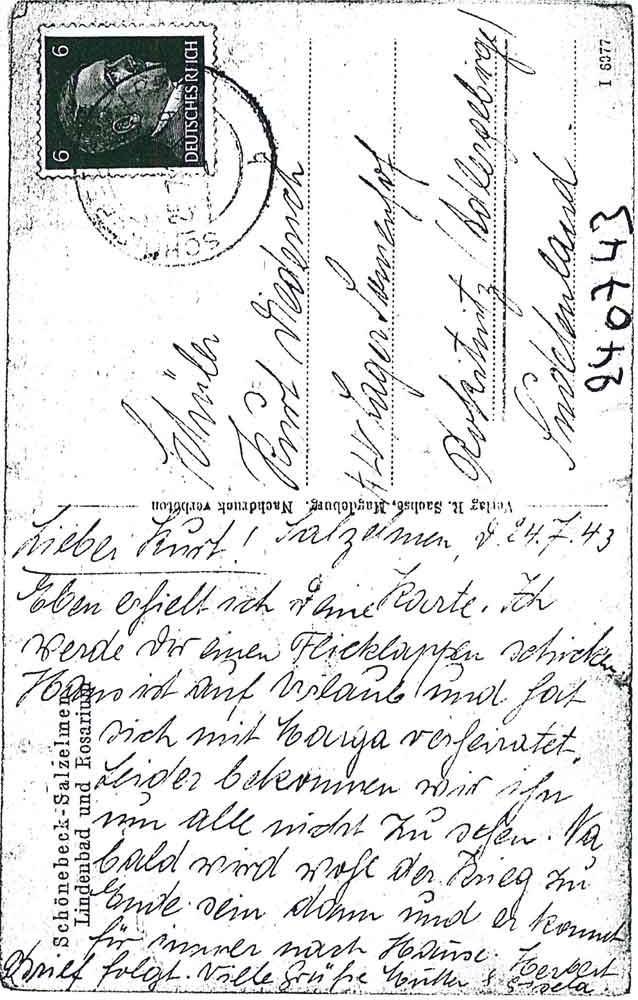 6 6
DEUTSCHES REICH
I 6977
Schüler
Kurt Diedrich
KLV Lager Sonnenhof
Rokitnitz / Adlergebirge
Sudetenland
Verlag R. Sachse, Magdeburg. Nachdruck verboten
Schönebeck-Salzelmen
Lindenbad und Rosarium
Salzelmen, d. 24.7.43
Lieber Kurt!
Eben erhielt ich deine Karte. Ich
werde Dir einen Flicklappen schicken
Hans ist auf Urlaub und hat
sich mit Marga verheiratet.
Leider bekommen wir ihn
nun alle nicht zu sehen. Na
bald wird wohl der Krieg zu
Ende sein dann und er kommt
für immer nach Hause.
Brief folgt. Viele Grüße Mutti & Herbert